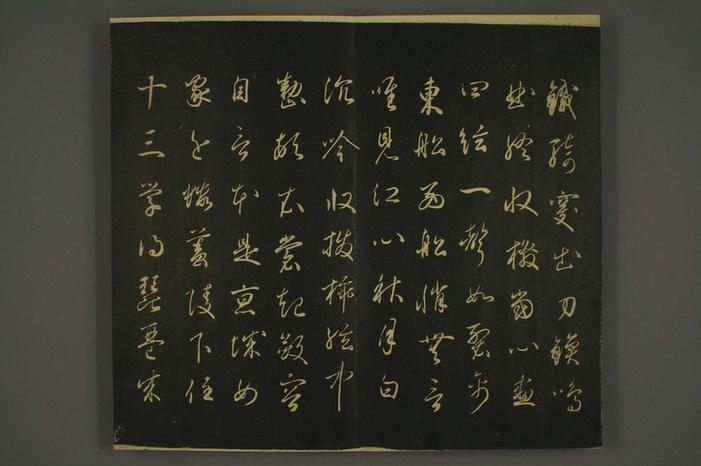 鐵騎突出刀鎗鳴
曲終收撥當心畫
四絃一聲如裂帛
東舩西舩悄無言
唯見江心秋月白
沉吟收撥插絃中
整頓衣裳起斂容
自言本是京城女
家在蝦蟇陵下住
十三学得琵琶成